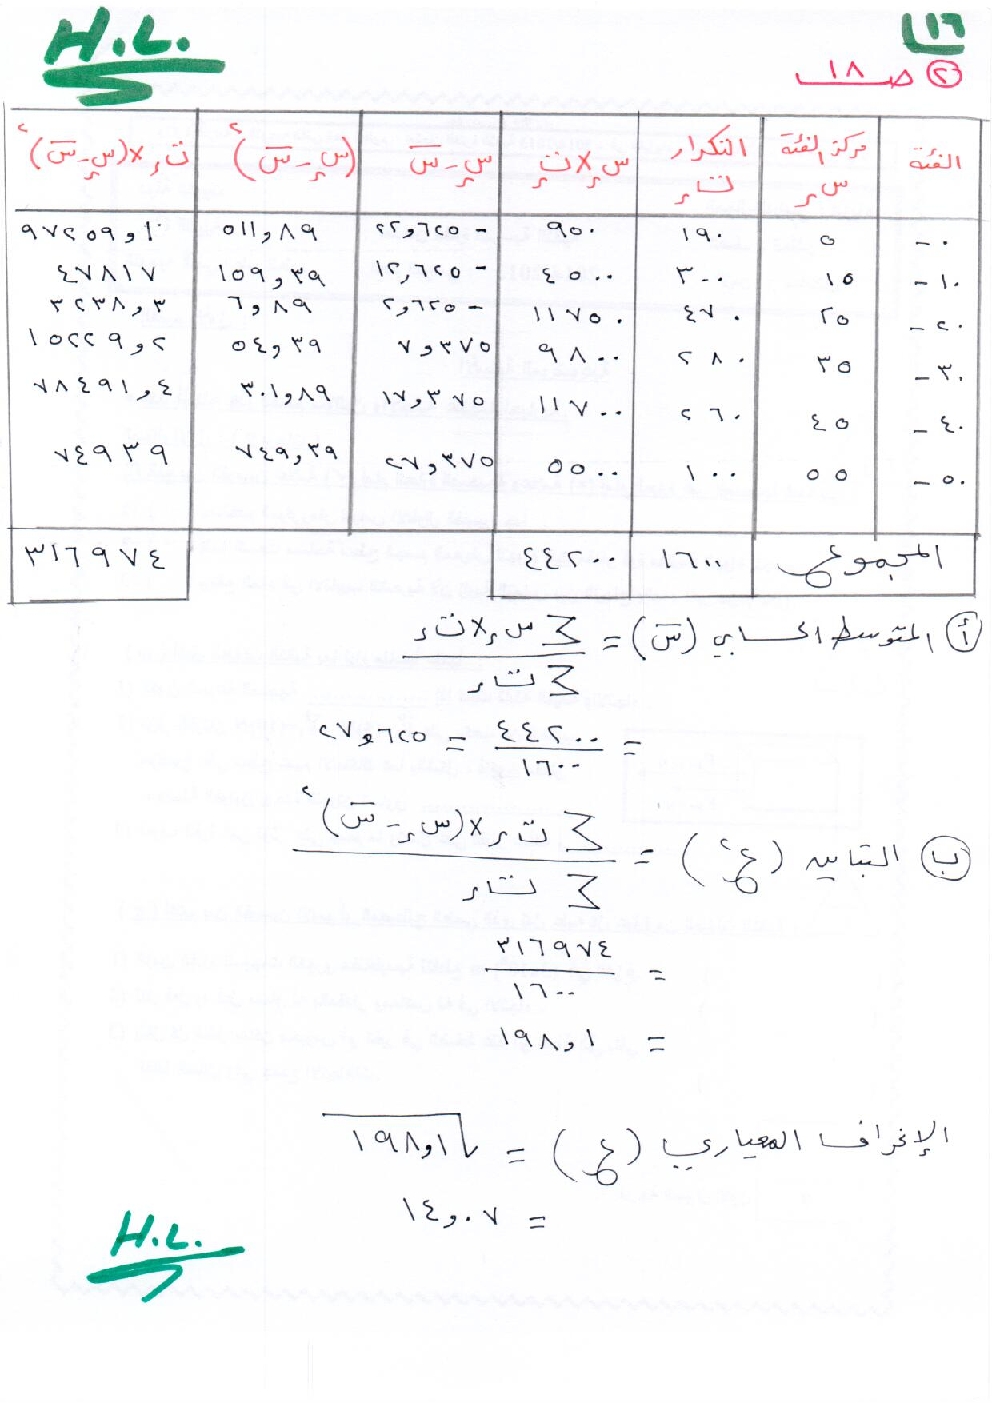 H.L.
١٦
② صـ ١٨
الفئة | مركز الفئة سر | التكرار تر | سر × تر | سر - س̄ | (سر - س̄)² | تر × (سر - س̄)²
٠ - | ٥ | ١٩٠ | ٩٥٠ | - ٢٢,٦٢٥ | ٥١١,٨٩ | ٩٧٢٥٩,١
١٠ - | ١٥ | ٣٠٠ | ٤٥٠٠ | - ١٢,٦٢٥ | ١٥٩,٣٩ | ٤٧٨١٧
٢٠ - | ٢٥ | ٤٧٠ | ١١٧٥٠ | - ٢,٦٢٥ | ٦,٨٩ | ٣٢٣٨,٣
٣٠ - | ٣٥ | ٢٨٠ | ٩٨٠٠ | ٧,٣٧٥ | ٥٤,٣٩ | ١٥٢٢٩,٢
٤٠ - | ٤٥ | ٢٦٠ | ١١٧٠٠ | ١٧,٣٧٥ | ٣٠١,٨٩ | ٧٨٤٩١,٤
٥٠ - | ٥٥ | ١٠٠ | ٥٥٠٠ | ٢٧,٣٧٥ | ٧٤٩,٣٩ | ٧٤٩٣٩
المجموع | ١٦٠٠ | ٤٤٢٠٠ | ٣١٦٩٧٤
أ المتوسط الحسابي (س̄) = ∑ سر × تر
∑ تر
= ٤٤٢٠٠ / ١٦٠٠ = ٢٧,٦٢٥
ب التباين (ع²) = ∑ تر × (سر - س̄)²
∑ تر
= ٣١٦٩٧٤ / ١٦٠٠
= ١٩٨,١
الإنحراف المعياري (ع) = √١٩٨,١
= ١٤,٠٧
H.L.